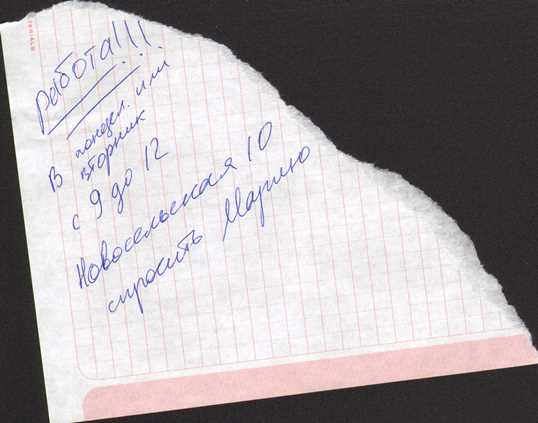 Работа!!!
В понедел. или
вторник
с 9 до 12
Новосельская 10
спросить Марину